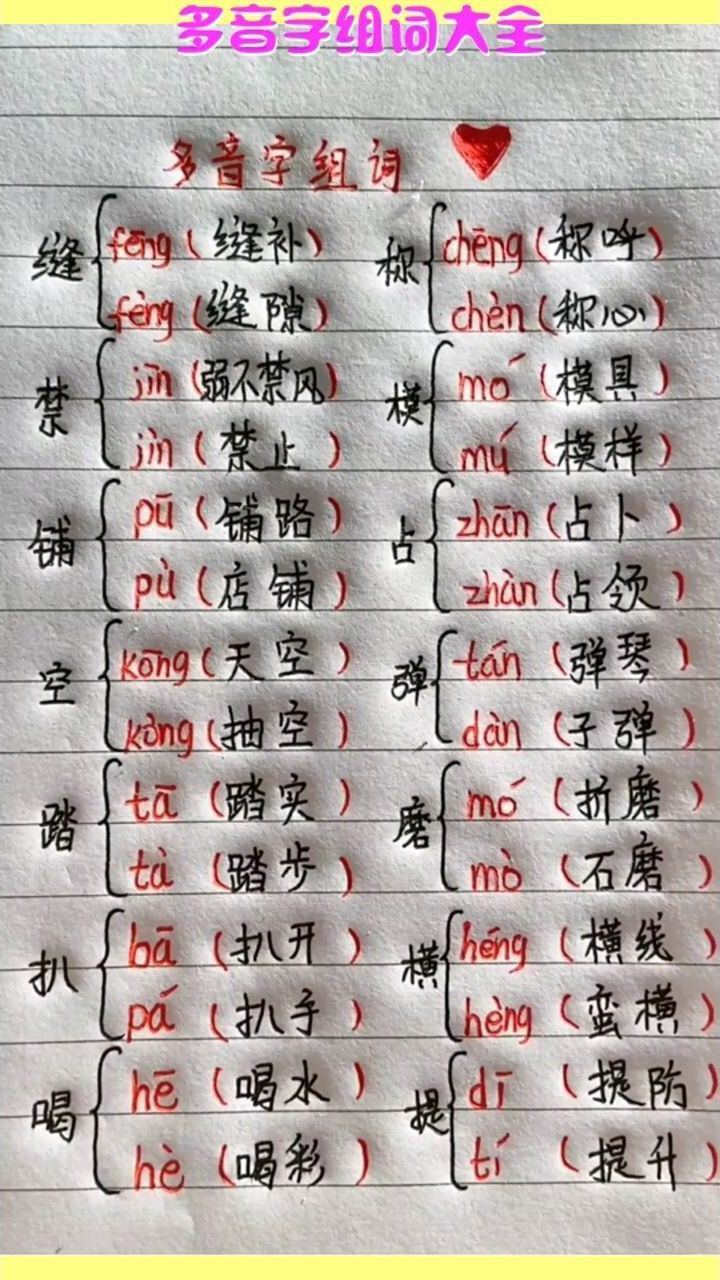 多音字组词大全
多音字组词
缝 fēng (缝补)
fèng (缝隙)
称 chēng (称呼)
chèn (称心)
禁 jīn (弱不禁风)
jìn (禁止)
模 mó (模具)
mú (模样)
铺 pū (铺路)
pù (店铺)
占 zhān (占卜)
zhàn (占领)
空 kōng (天空)
kòng (抽空)
弹 tán (弹琴)
dàn (子弹)
踏 tā (踏实)
tà (踏步)
磨 mó (折磨)
mò (石磨)
扒 bā (扒开)
pá (扒手)
横 héng (横线)
hèng (蛮横)
喝 hē (喝水)
hè (喝彩)
提 dī (提防)
tí (提升)